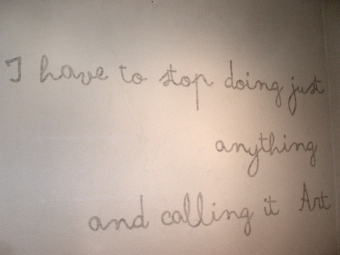 I have to stop doing just
anything
and calling it Art